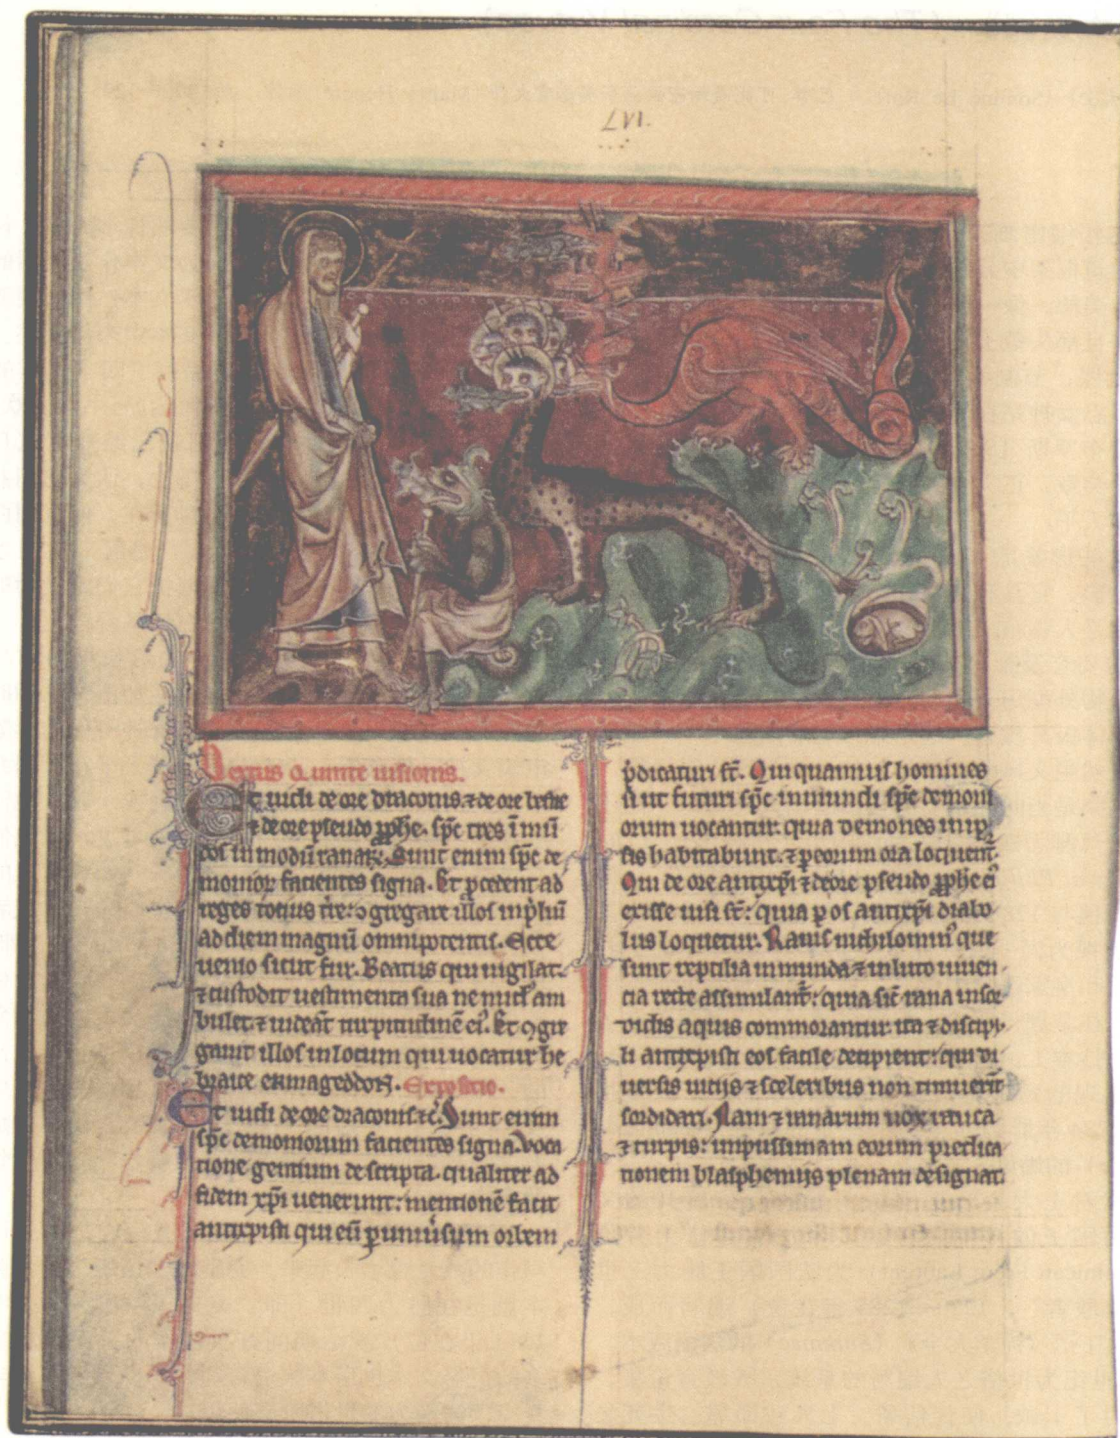 Textus Quinte uisionis.
Et uidi de ore draconis. ⁊ de ore bestie
⁊ de ore pseudo ꝓphe. sp̄c tres ĩ mũ
dos in modũ ranaꝝ. Sunt enim sp̄c de
monior facientes signa. Et ꝓcedent ad
reges totius tr̄e: ꝯgregare illos in pliũ
ad diem magnũ omnipotentis. Ecce
uenio sicut fur. Beatus qui uigilat.
⁊ custodit uestimenta sua ne nud' am
bulet. ⁊ uideãt turpitudinẽ ei'. Et ꝯgre
gauit illos in locum qui uocatur he
braice ermagedon. Expositio.
Et uidi de ore draconis. ⁊c̄. Sunt enim
sp̄c demoniorum facientes signa. Uoca
tione gentium descripta. qualiter ad
fidem xp̄i uenerunt: mentionẽ facit
antixpisti qui eũ ꝑ uniũsum orbem
p̃dicaturi st̄. Qui quamuis homines
sp̄c inmundi sp̄c demoni
orum uocantur. quia demones in ip
sis habitabunt. ⁊ ꝑ eorum ora loquent̄.
Qui de ore antixp̄i ⁊ de ore pseudo ꝓphe ei
exisse uisi st̄: quia ꝑ os antixp̄i diabo
lus loquetur. Ranis nichilomin' que
sunt reptilia inmunda ⁊ in luto uiuen
tia recte assimilant̄: quia sic̄ rana in sor
didis aquis commorantur. ita ⁊ discipu
li antixpisti eos facile decipient: qui di
uersis uicijs ⁊ sceleribus non timuerĩt
sordidari. Nam ⁊ ranarum uox rauca
⁊ turpis: impiissimam eorum predica
tionem blasphemijs plenam designat.